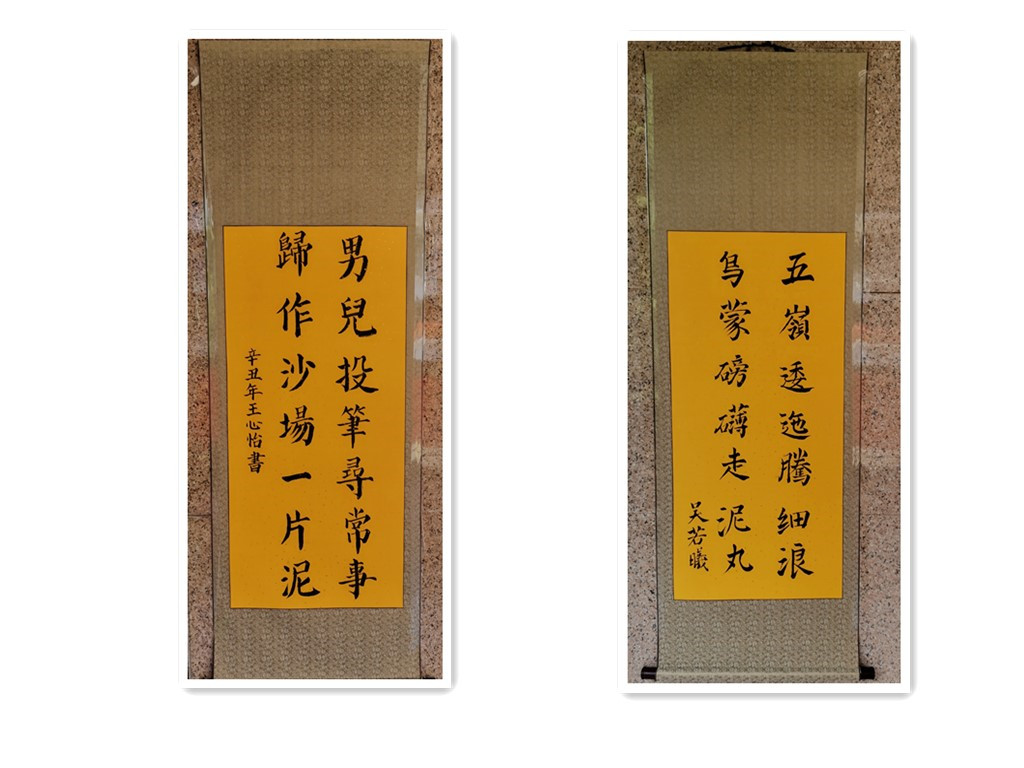 男兒投筆尋常事
歸作沙場一片泥
辛丑年王心怡書
五嶺逶迤騰細浪
烏蒙磅礴走泥丸
吴若曦